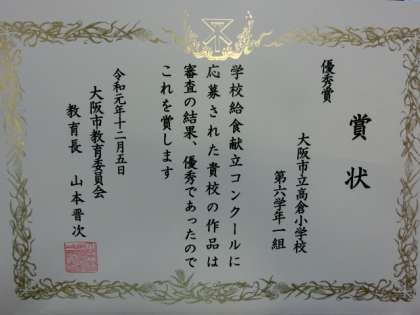 賞状
優秀賞
大阪市立高倉小学校
第六学年一組
学校給食献立コンクールに
応募された貴校の作品は
審査の結果、優秀であったので
これを賞します
令和元年十二月五日
大阪市教育委員会
教育長 山本晋次